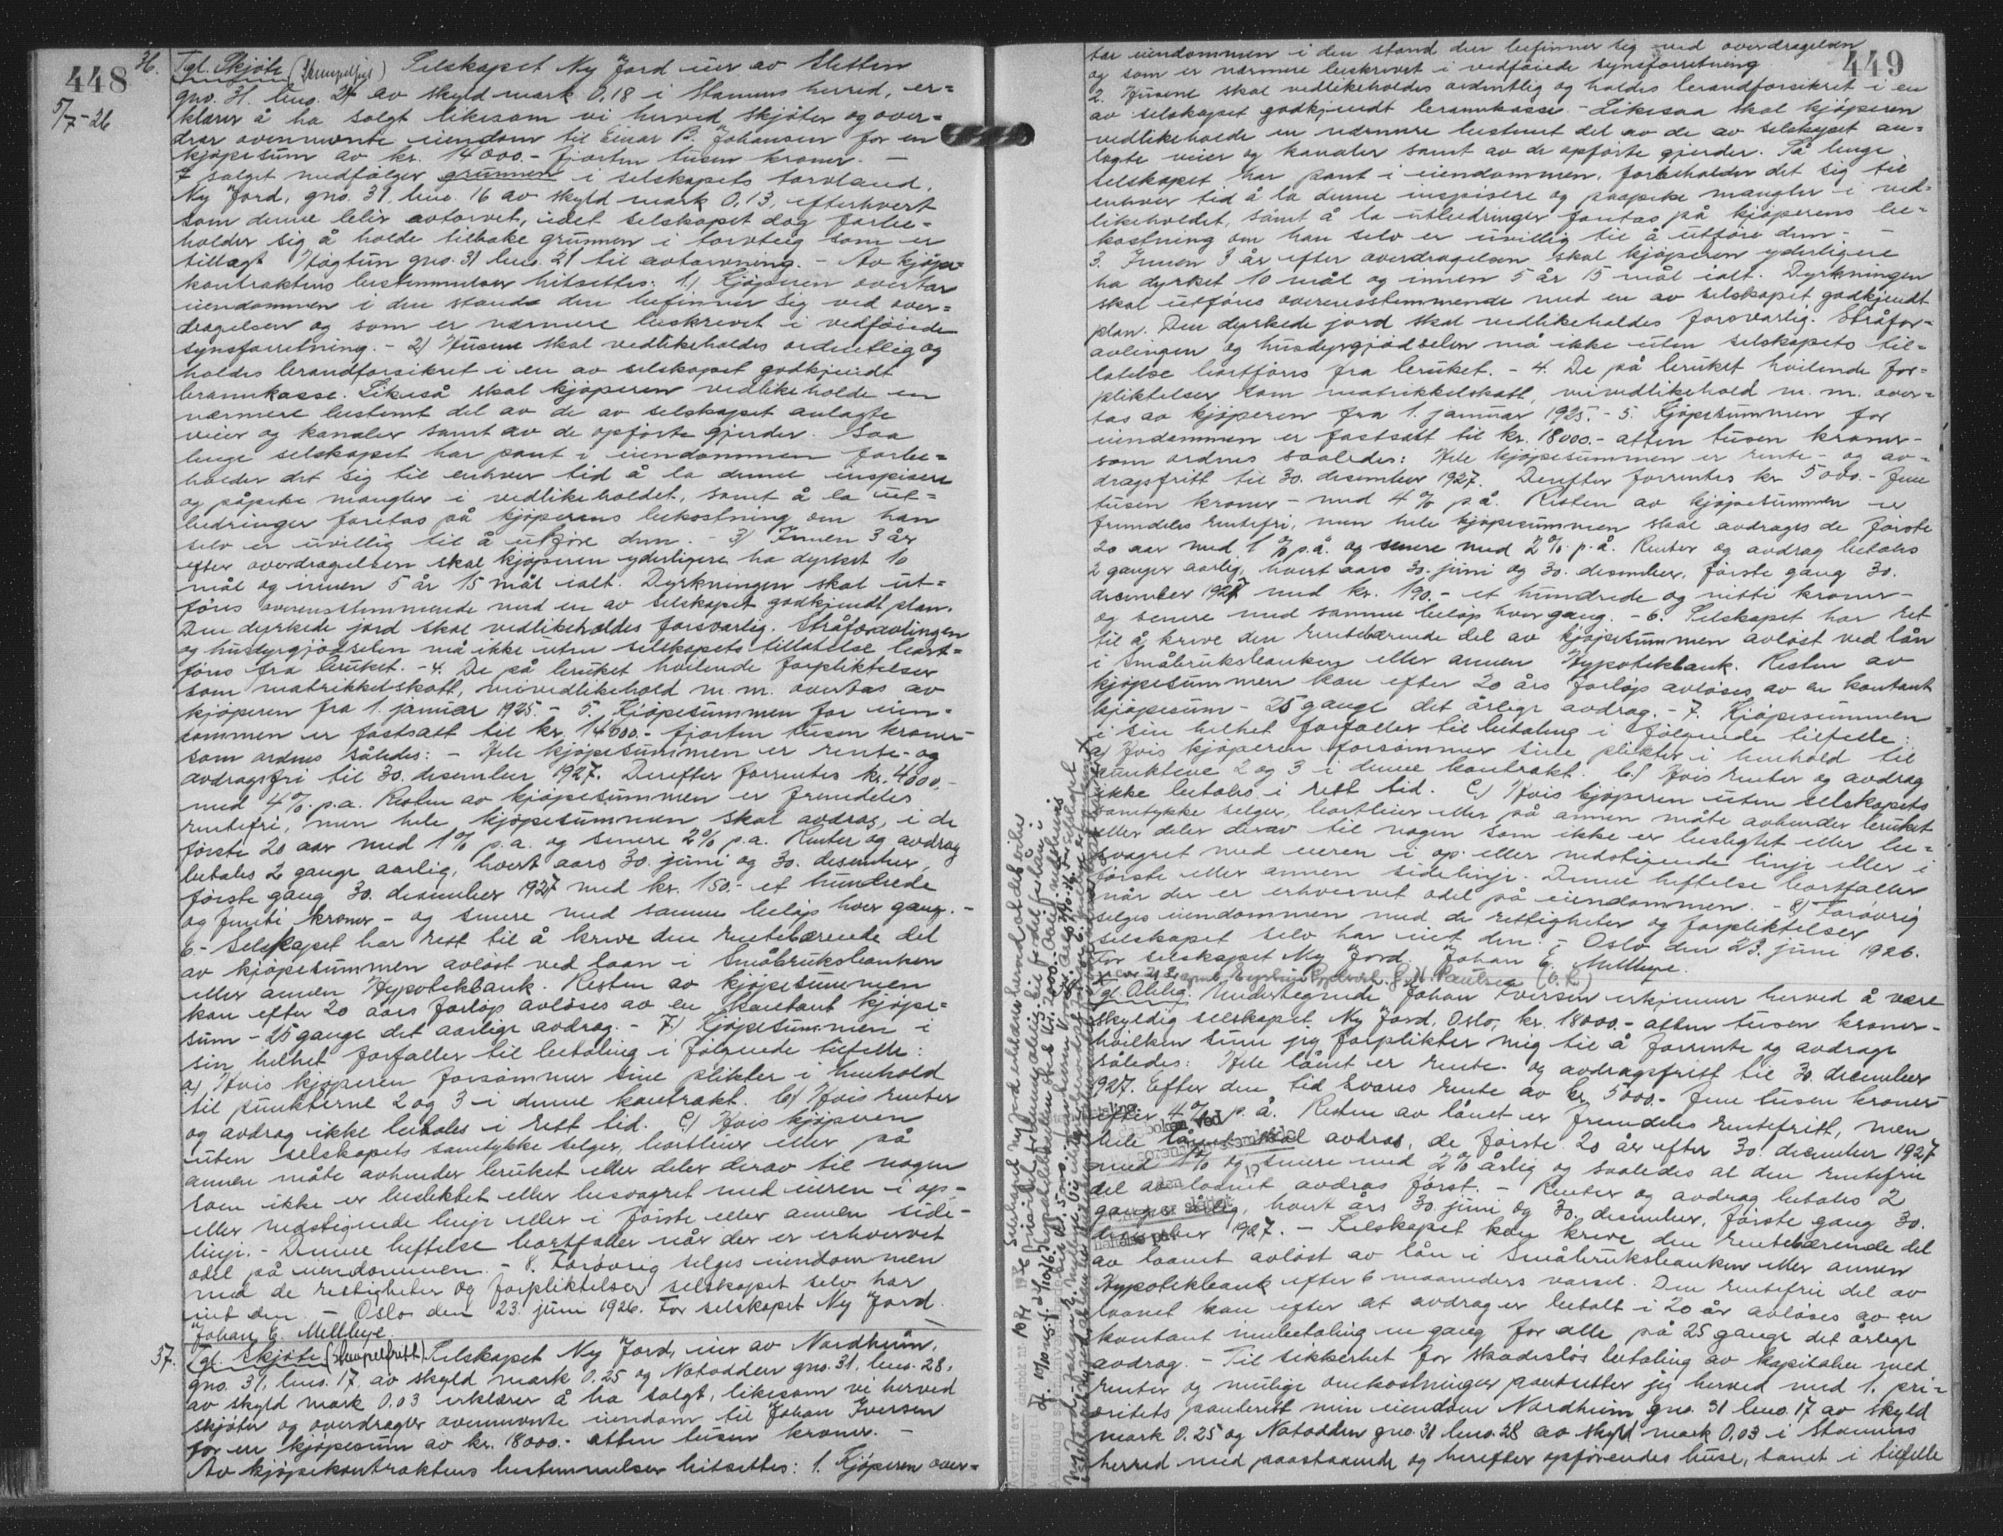 448
36.
5/7-26
Tgl. Skjøte (Stempelfrit) Selskapet Ny Jord eier av Sletten
gno. 31. bno. 24 av skyld mark 0,18 i Stamnes herred, er=
klærer å ha solgt likesom vi herved skjøter og over=
drar ovennevnte eiendom til Einar B. Johansen for en
kjøpesum av kr. 14000.- fjorten tusen kroner. -
I salget medfølger grunnen i selskapets torvland,
Ny Jord, gno. 31 bno. 16 av skyld mark 0,13, efterhvert
som denne blir avtorvet, idet selskapet dog forbe=
holder sig å holde tilbake grunnen i torvteig som er
tillagt Høgtun gno. 31 bno. 21 til avtorvning. - Av kjøpe=
kontraktens bestemmelser hitsettes: 1) Kjøperen overtar
eiendommen i den stand den befinner sig ved over=
dragelsen og som er nærmere beskrevet i vedføiede
synsforretning. - 2) Husene skal vedlikeholdes ordentlig og
holdes brandforsikret i en av selskapet godkjendt
brannkasse. Likeså skal kjøperen vedlikeholde en
nærmere bestemt del av de av selskapet anlagte
veier og kanaler samt av de opførte gjerder. Saa
lenge selskapet har pant i eiendommen forbe=
holder det sig til enhver tid å la denne inspisere
og påpeke mangler i vedlikeholdet, samt å la ut=
bedringer foretas på kjøperens bekostning om han
selv er uvillig til å utføre dem. - 3) Innen 3 år
efter overdragelsen skal kjøperen yderligere ha dyrket 10
mål og innen 5 år 15 mål ialt. Dyrkningen skal ut=
føres overensstemmende med en av selskapet godkjendt plan.
Den dyrkede jord skal vedlikeholdes forsvarlig. Stråforavlingen
og husdyrgjødselen må ikke uten selskapets tillatelse bort=
føres fra bruket. - 4. De på bruket hvilende forpliktelser
som matrikkelskatt, veivedlikehold m. m. overtas av
kjøperen fra 1. januar 1925. - 5. Kjøpesummen for eien=
dommen er fastsatt til kr. 14000.- fjorten tusen kroner-
som ordnes således: - Hele kjøpesummen er rente- og
avdragsfri til 30. desember 1927. Derefter forrentes kr. 4000.-
med 4%. p.a. Resten av kjøpesummen er fremdeles
rentefri, men hele kjøpesummen skal avdrag, i de
første 20 aar med 1% p.a. og senere 2% p.a. Renter og avdrag
betales 2 gange aarlig, hvert aars 30. juni og 30. desember,
første gang 30. desember 1927 med kr. 150.- et hundrede
og femti kroner - og senere med samme beløp hver gang. -
6. - Selskapet har rett til å kreve den rentebærende del
av kjøpesummen avløst ved laan i Småbruksbanken
eller annen Hypotekbank. Resten av kjøpesummen
kan efter 20 aars forløp avløses av en kontant kjøpe=
sum - 25 gange det aarlige avdrag. - 7.) Kjøpesummen i
sin helhet forfaller til betaling i følgende tilfelle:
a) Hvis kjøperen forsømmer sine plikter i henhold
til punkterne 2 og 3 i denne kontrakt. b) Hvis renter
og avdrag ikke betales i rett tid. c) Hvis kjøperen
uten selskapets samtykke selger, bortleier eller på
annen måte avhender bruket eller deler derav til nogen
som ikke er beslektet eller besvogret med eieren i op-
eller nedstigende linje eller i første eller annen side-
linje. - Denne heftelse bortfaller når der er erhvervet
odel på eiendommen. - 8. Forøvrig selges eiendommen
med de rettigheter og forpliktelser selskapet selv har
eiet den - Oslo den 23. juni 1926. For selskapet Ny Jord.
Johan E. Mellbye.
37. Tgl. Skjøte (Stempelfritt) Selskapet Ny Jord, eier av Nordheim,
gno. 31, bno. 17 av skyld mark 0.25 og Natodden gno. 31, bno. 28,
av skyld mark 0.03 erklærer å ha solgt, likesom vi herved
skjøter og overdrager ovennevnte eiendom til Johan Iversen
for en kjøpesum av kr. 18000.- atten tusen kroner. -
Av kjøpekontraktens bestemmelser hitsettes: 1. Kjøperen over=
449
tar eiendommen i den stand den befinner sig ved overdragelsen
og som er nærmere beskrevet i vedføiede synsforretning.
2. Husene skal vedlikeholdes ordentlig og holdes brandforsikret i en
av selskapet godkjendt brannkasse - Likesaa skal kjøperen
vedlikeholde en nærmere bestemt del av de av selskapet an=
lagte veier og kanaler samt av de opførte gjerder. Så lenge
selskapet har pant i eiendommen, forbeholder det sig til
enhver tid å la denne inspisere og paapeke mangler i ved=
likeholdet, samt å la utbedringer foretas på kjøperens be=
kostning om han selv er uvillig til å utføre dem. -
3. Innen 3 år efter overdragelsen skal kjøperen yderligere
ha dyrket 10 mål og innen 5 år 15 mål ialt. Dyrkningen
skal utføres overensstemmende med en av selskapet godkjendt
plan. Den dyrkede jord skal vedlikeholdes forsvarlig. Stråfor=
avlingen og husdyrgjødselen må ikke uten selskapets til=
latelse bortføres fra bruket. - 4. De på bruket hvilende for=
pliktelser som matrikkelskatt, veivedlikehold m. m. over=
tas av kjøperen fra 1. januar 1925. - 5. Kjøpesummen for
eiendommen er fastsatt til kr. 18000.- atten tusen kroner-
som ordnes saaledes: Hele kjøpesummen er rente- og av=
dragsfritt til 30. desember 1927. Derefter forrentes kr. 5000.- fem
tusen kroner - med 4% p.å. Resten av kjøpesummen er
fremdeles rentefri, men hele kjøpesummen skal avdrages de første
20 aar med 1% p.å. og senere med 2%. p.å. Renter og avdrag betales
2 ganger aarlig, hvert aars 30. juni og 30. desember, første gang 30.
december 1927 med kr. 190.- et hundrede og nitti kroner-
og senere med samme beløp hver gang. - 6. Selskapet har ret
til å kreve den rentebærende del av kjøpesummen avløst ved lån
i Småbruksbanken eller annen Hypotekbank. Resten av
kjøpesummen kan efter 20 års forløp avløses av en kontant
kjøpesum - 25 gange det årlige avdrag. - 7. Kjøpesummen
i sin helhet forfaller til betaling i følgende tilfelle:
a) Hvis kjøperen forsømmer sine plikter i henhold til
punktene 2 og 3 i denne kontrakt. b.) Hvis renter og avdrag
ikke betales i rett tid. c.) Hvis kjøperen uten selskapets
samtykke selger, bortleier eller på annen måte avhender bruket
eller deler derav til nogen som ikke er beslegtet eller be=
svogret med eieren i op- eller nedstigende linje eller i
første eller annen sidelinje. Denne heftelse bortfaller
når der er erhvervet odel på eiendommen. - 8) Forøvrig
selges eiendommen med de rettigheter og forpliktelser
selskapet selv har eiet den. - Oslo den 23. juni 1926.
For selskapet Ny Jord. Johan E. Mellbye.
Tgl. Oblig. Undertegnede Johan Iversen erkjenner herved å være
skyldig selskapet Ny Jord, Oslo, kr. 18000.- atten tusen kroner-
hvilken sum jeg forplikter mig til å forrente og avdrage
således: Hele lånet er rente- og avdragsfritt til 30. december
1927. Efter den tid svares rente av kr. 5000.- fem tusen kroner-
efter 4% p.å. Resten av lånet er fremdeles rentefritt, men
hele lånet skal avdras, de første 20 år efter 30. december 1927
med 1% og senere med 2% årlig og saaledes at den rentefrie
del av laanet avdras først. - Renter og avdrag betales 2
gange årlig, hvert års 30. juni og 30. desember, første gang 30.
desember 1927. - Selskapet kan kreve den rentebærende del
av laanet avløst av lån i Småbruksbanken eller annen
Hypotekbank efter 6 maaneders varsel. Den rentefrie del av
laanet kan efter at avdrag er betalt i 20 år avløses av en
kontant innbetaling en gang for alle på 25 gange det årlige
avdrag. - Til sikkerhet for skadesløs betaling av kapitalen med
renter og mulige omkostninger pantsetter jeg herved med 1. pri=
oritets panterett min eiendom Nordheim gno. 31 bno. 17 av skyld
mark 0.25 og Natodden gno. 31 bno. 28 av skyld mark 0,03 i Stamnes
herred med paastaaende og herefter opførendes huse, samt i tilfelle